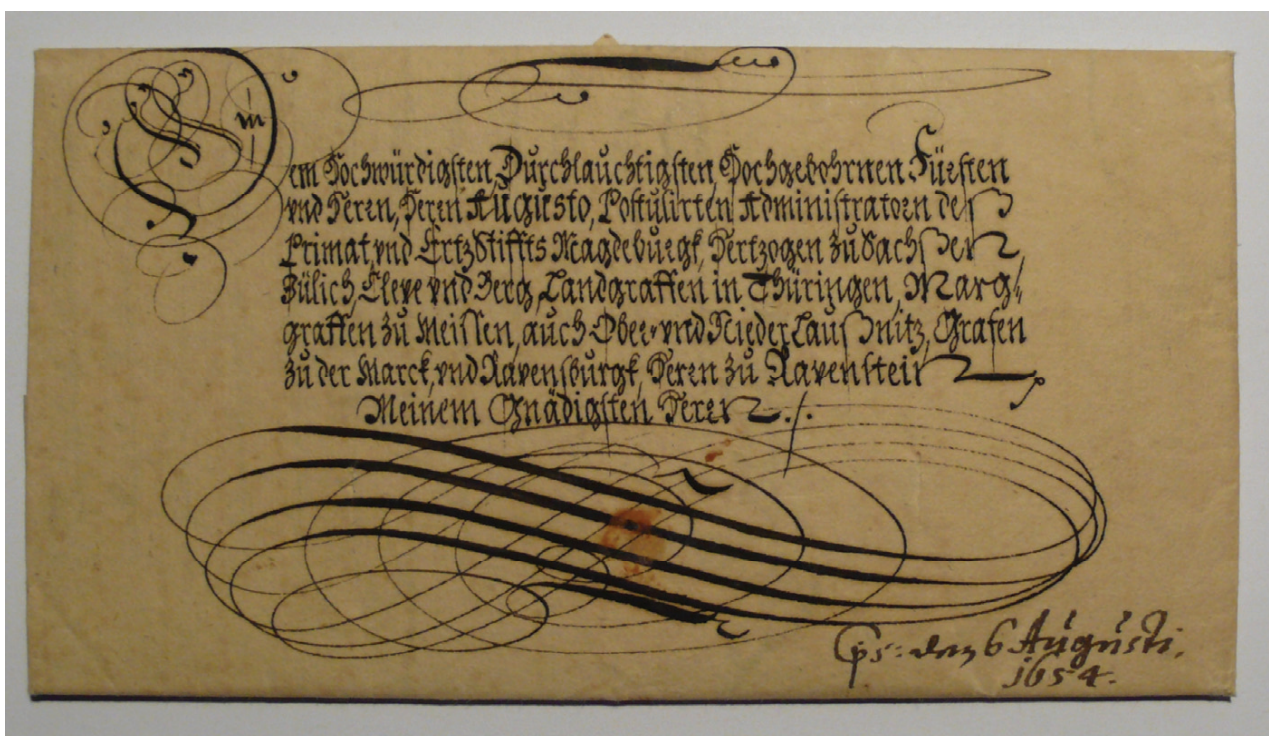 Dem Hochwürdigsten, Durchlauchtigsten, Hochgebohrnen Fürsten
vnd Heren, Heren Augusto, Postulirten Administratorn deß
Primat vnd Ertz Stiffts Magdeburgk, Hertzogen zu Sachßen,
Jülich, Cleve vnd Berg, Landgraffen in Thüringen, Marg⸗
graffen zu Meissen, auch Ober⸗ vnd Nieder Laußnitz, Grafen
zu der Marck, vnd Ravensburgk, Heren zu Ravenstein
Meinem Gnädigsten Heren ./.
den 6 Augusti.
1654.